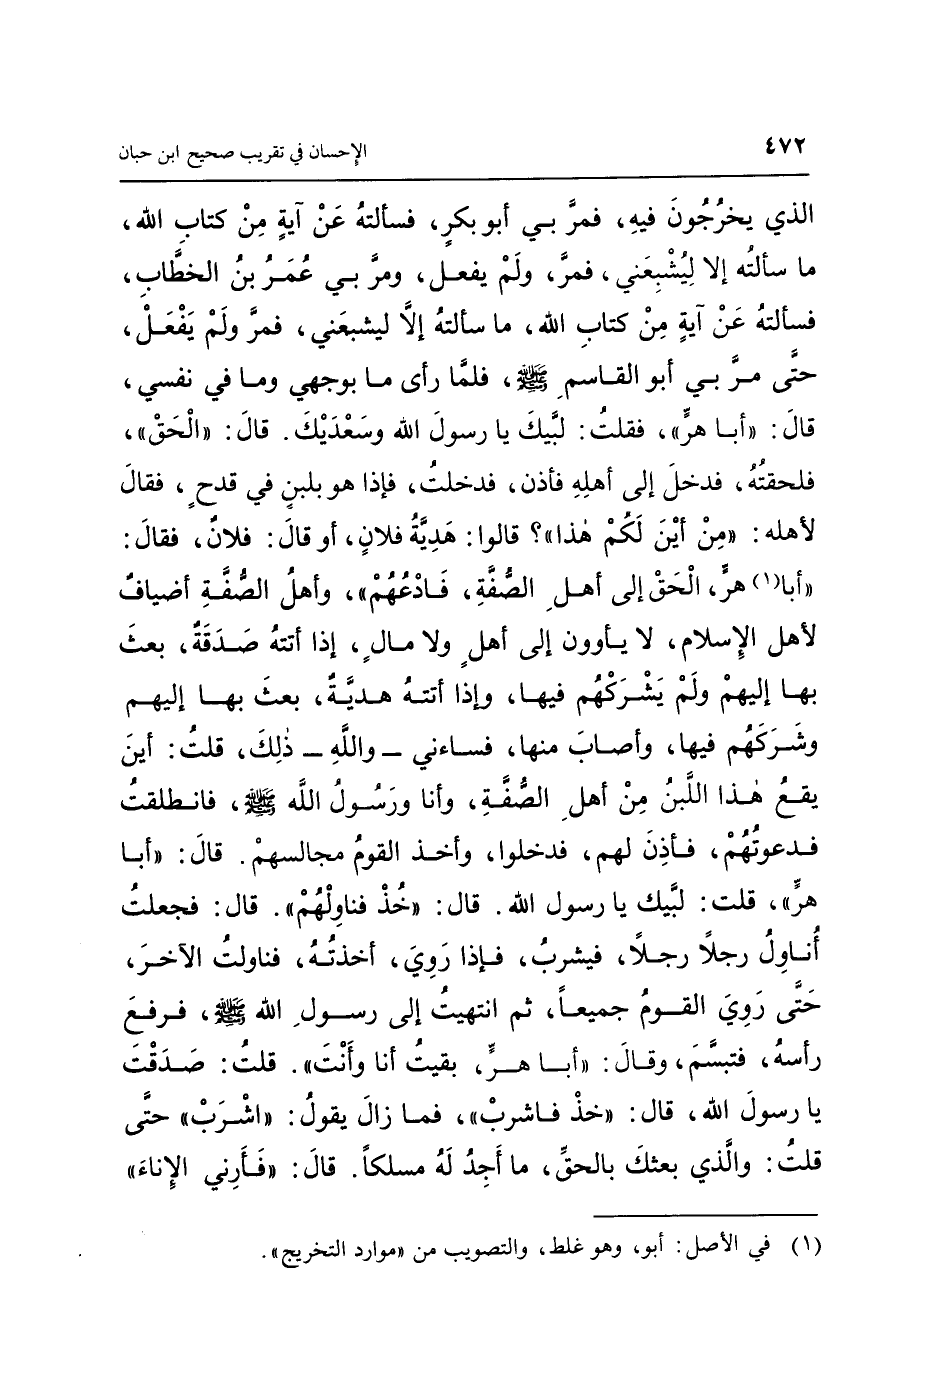 ٤٧٢ الإحسان في تقريب صحيح ابن حبان
الذي يخرُجُونَ فيهِ، فمرَّ بي أبو بكرٍ، فسألتهُ عَنْ آيةٍ مِنْ كتابِ الله،
ما سألتُه إلا لِيُشْبِعَني، فمرَّ، ولَمْ يفعل، ومرَّ بي عُمَرُ بنُ الخطَّابِ،
فسألتهُ عَنْ آيةٍ مِنْ كتابِ الله، ما سألتهُ إلَّا ليشبعَني، فمرَّ ولَمْ يَفْعَلْ،
حتَّى مرَّ بي أبو القاسمِ ﷺ، فلمَّا رأى ما بوجهي وما في نفسي،
قالَ: «أبا هرٍّ»، فقلتُ: لبَّيكَ يا رسولَ الله وسَعْدَيْكَ. قالَ: «الْحَقْ»،
فلحقتُهُ، فدخلَ إلى أهلِهِ فأذن، فدخلتُ، فإذا هو بلبنٍ في قدحٍ، فقالَ
لأهله: «مِنْ أَيْنَ لَكُمْ هٰذا»؟ قالوا: هَدِيَّةُ فلانٍ، أو قالَ: فلانٌ، فقالَ:
«أبا(١) هرٍّ، الْحَقْ إلى أهلِ الصُّفَّةِ، فَادْعُهُمْ»، وأهلُ الصُّفَّةِ أضيافٌ
لأهل الإِسلام، لا يأوون إلى أهلٍ ولا مالٍ، إذا أتتهُ صَدَقَةٌ، بعثَ
بها إليهمْ ولَمْ يَشْرَكْهُم فيها، وإذا أتتهُ هديَّةٌ، بعثَ بها إليهم
وشَرَكَهُم فيها، وأصابَ منها، فساءني ـ واللَّهِ ـ ذٰلِكَ، قلتُ: أينَ
يقعُ هٰذا اللَّبنُ مِنْ أهلِ الصُّفَّةِ، وأنا ورَسُولُ اللَّه ﷺ، فانطلقتُ
فدعوتُهُمْ، فأذِنَ لهم، فدخلوا، وأخذ القومُ مجالسهمْ. قالَ: «أبا
هرٍّ»، قلت: لبَّيك يا رسول الله. قال: «خُذْ فناوِلْهُمْ». قال: فجعلتُ
أُناوِلُ رجلًا رجلًا، فيشربُ، فإذا رَوِيَ، أخذتُهُ، فناولتُ الآخرَ،
حَتَّى رَوِيَ القومُ جميعاً، ثم انتهيتُ إلى رسولِ الله ﷺ، فرفعَ
رأسهُ، فتبسَّمَ، وقالَ: «أبا هرٍّ، بقيتُ أنا وأَنْتَ». قلتُ: صَدَقْتَ
يا رسولَ الله، قال: «خذْ فاشربْ»، فما زالَ يقولُ: «اشْرَبْ» حتَّى
قلتُ: والَّذي بعثكَ بالحقِّ، ما أَجِدُ لَهُ مسلكاً. قالَ: «فَأَرِني الإِناءَ»
(١) في الأصل: أبو، وهو غلط، والتصويب من «موارد التخريج».